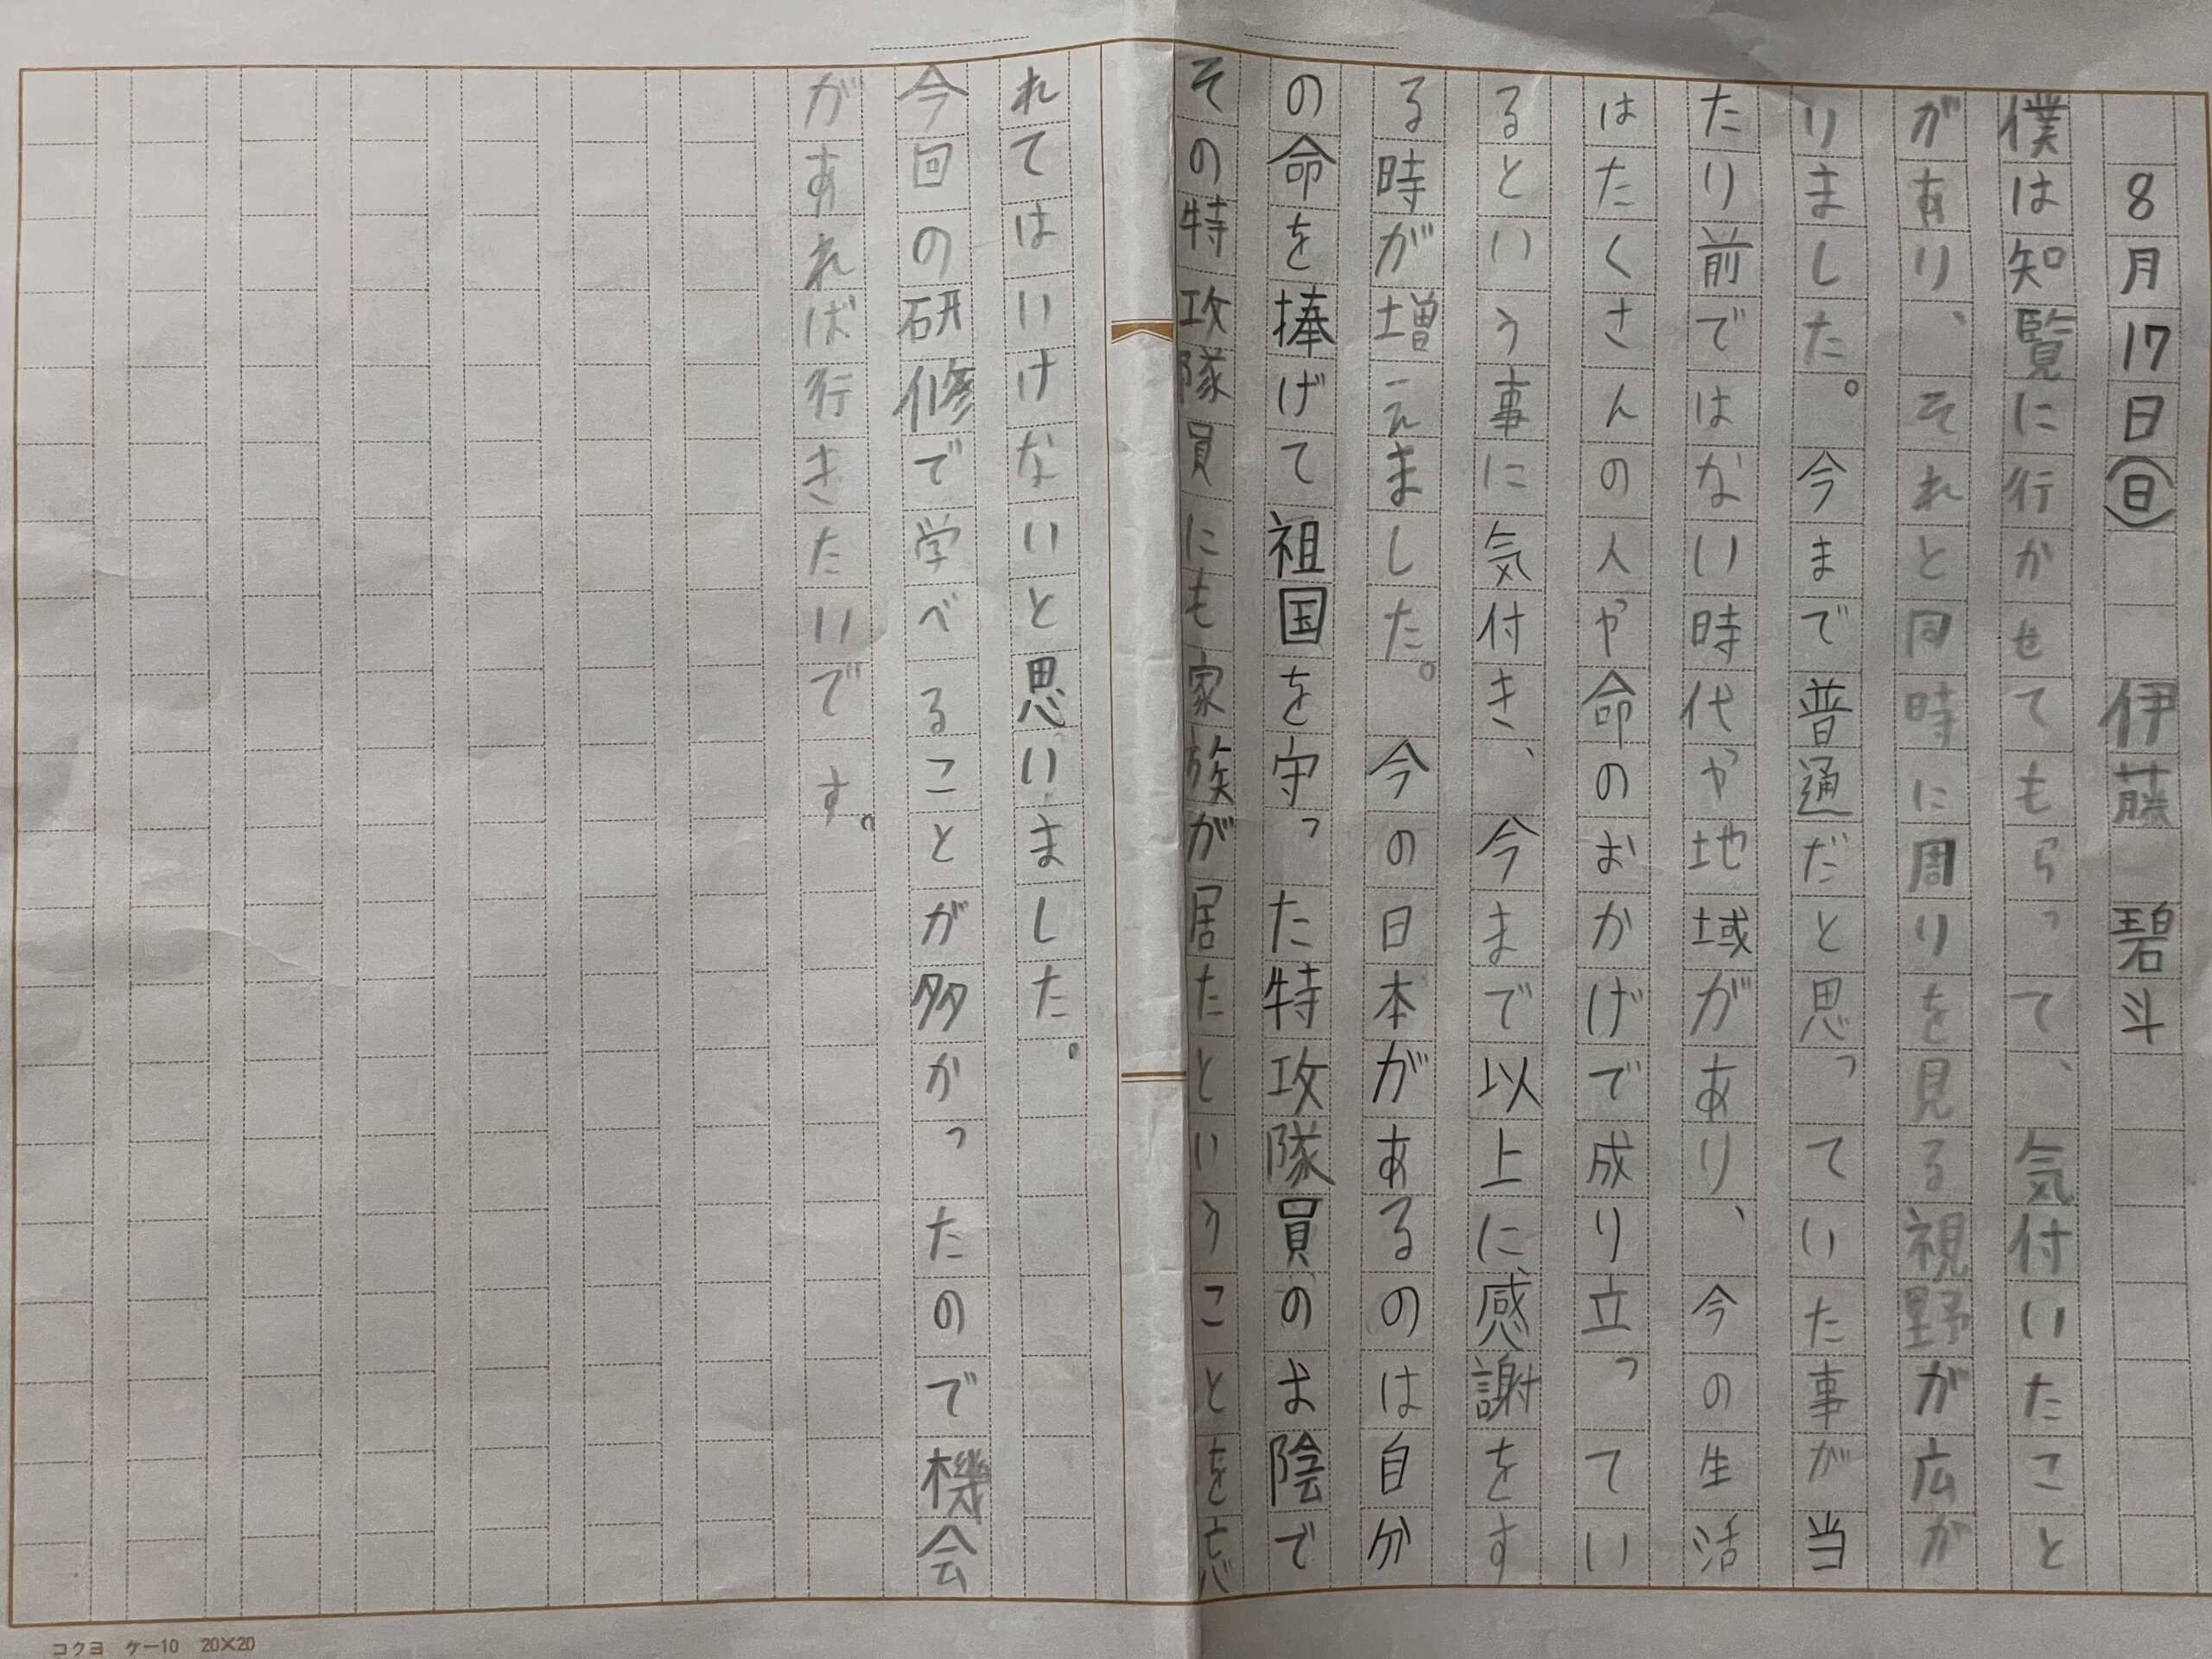 8月17日㊐ 伊藤 碧斗
僕は知覧に行かせてもらって、気付いたこと
があり、それと同時に周りを見る視野が広が
りました。今まで普通だと思っていた事が当
たり前ではない時代や地域があり、今の生活
はたくさんの人や命のおかげで成り立ってい
るという事に気付き、今まで以上に感謝をす
る時が増えました。今の日本があるのは自分
の命を捧げて祖国を守った特攻隊員のお陰で
その特攻隊員にも家族が居たということを忘
れてはいけないと思いました。
今回の研修で学べることが多かったので機会
があれば行きたいです。
コクヨ ケー10 20×20